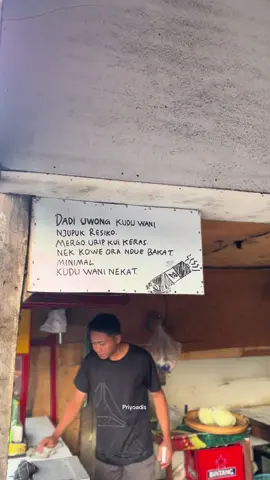 DADI UWONG KUDU WANI
NJUPUK RESIKO.
MERGO URIP KUI KERAS.
NEK KOWE ORA NDUE BAKAT.
MINIMAL
KUDU WANI NEKAT.
Priyoadis
BINTANG